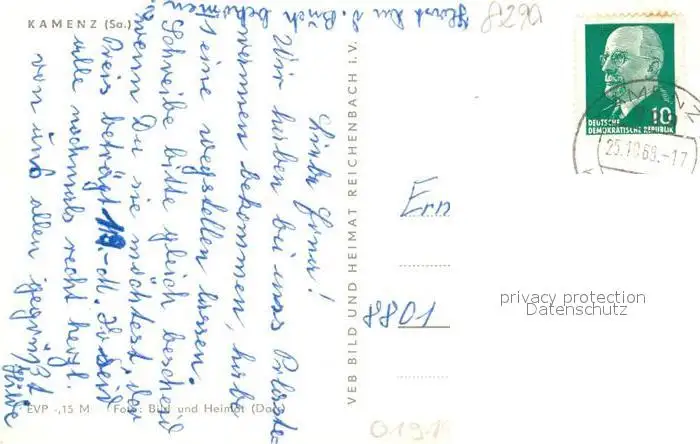 KAMENZ (Sa.)
Horst hu d. Buch bekommen
8290
Liebe Erna!
Wir haben bei uns Polster-
wannen bekommen, habe
eine wegstellen lassen.
Schreibe bitte gleich bescheid
wenn Du sie möchtest, der
Preis beträgt 110.-M. Ihr seid
alle nochmals recht herzl.
von uns allen gegrüßt
Hilde
EVP -,15 M Foto: Bild und Heimat (Dau)
VEB BILD UND HEIMAT REICHENBACH I. V.
DEUTSCHE
DEMOKRATISCHE REPUBLIK
10
KAMENZ
25.10.69.-17
Ern
8801
privacy protection
Datenschutz